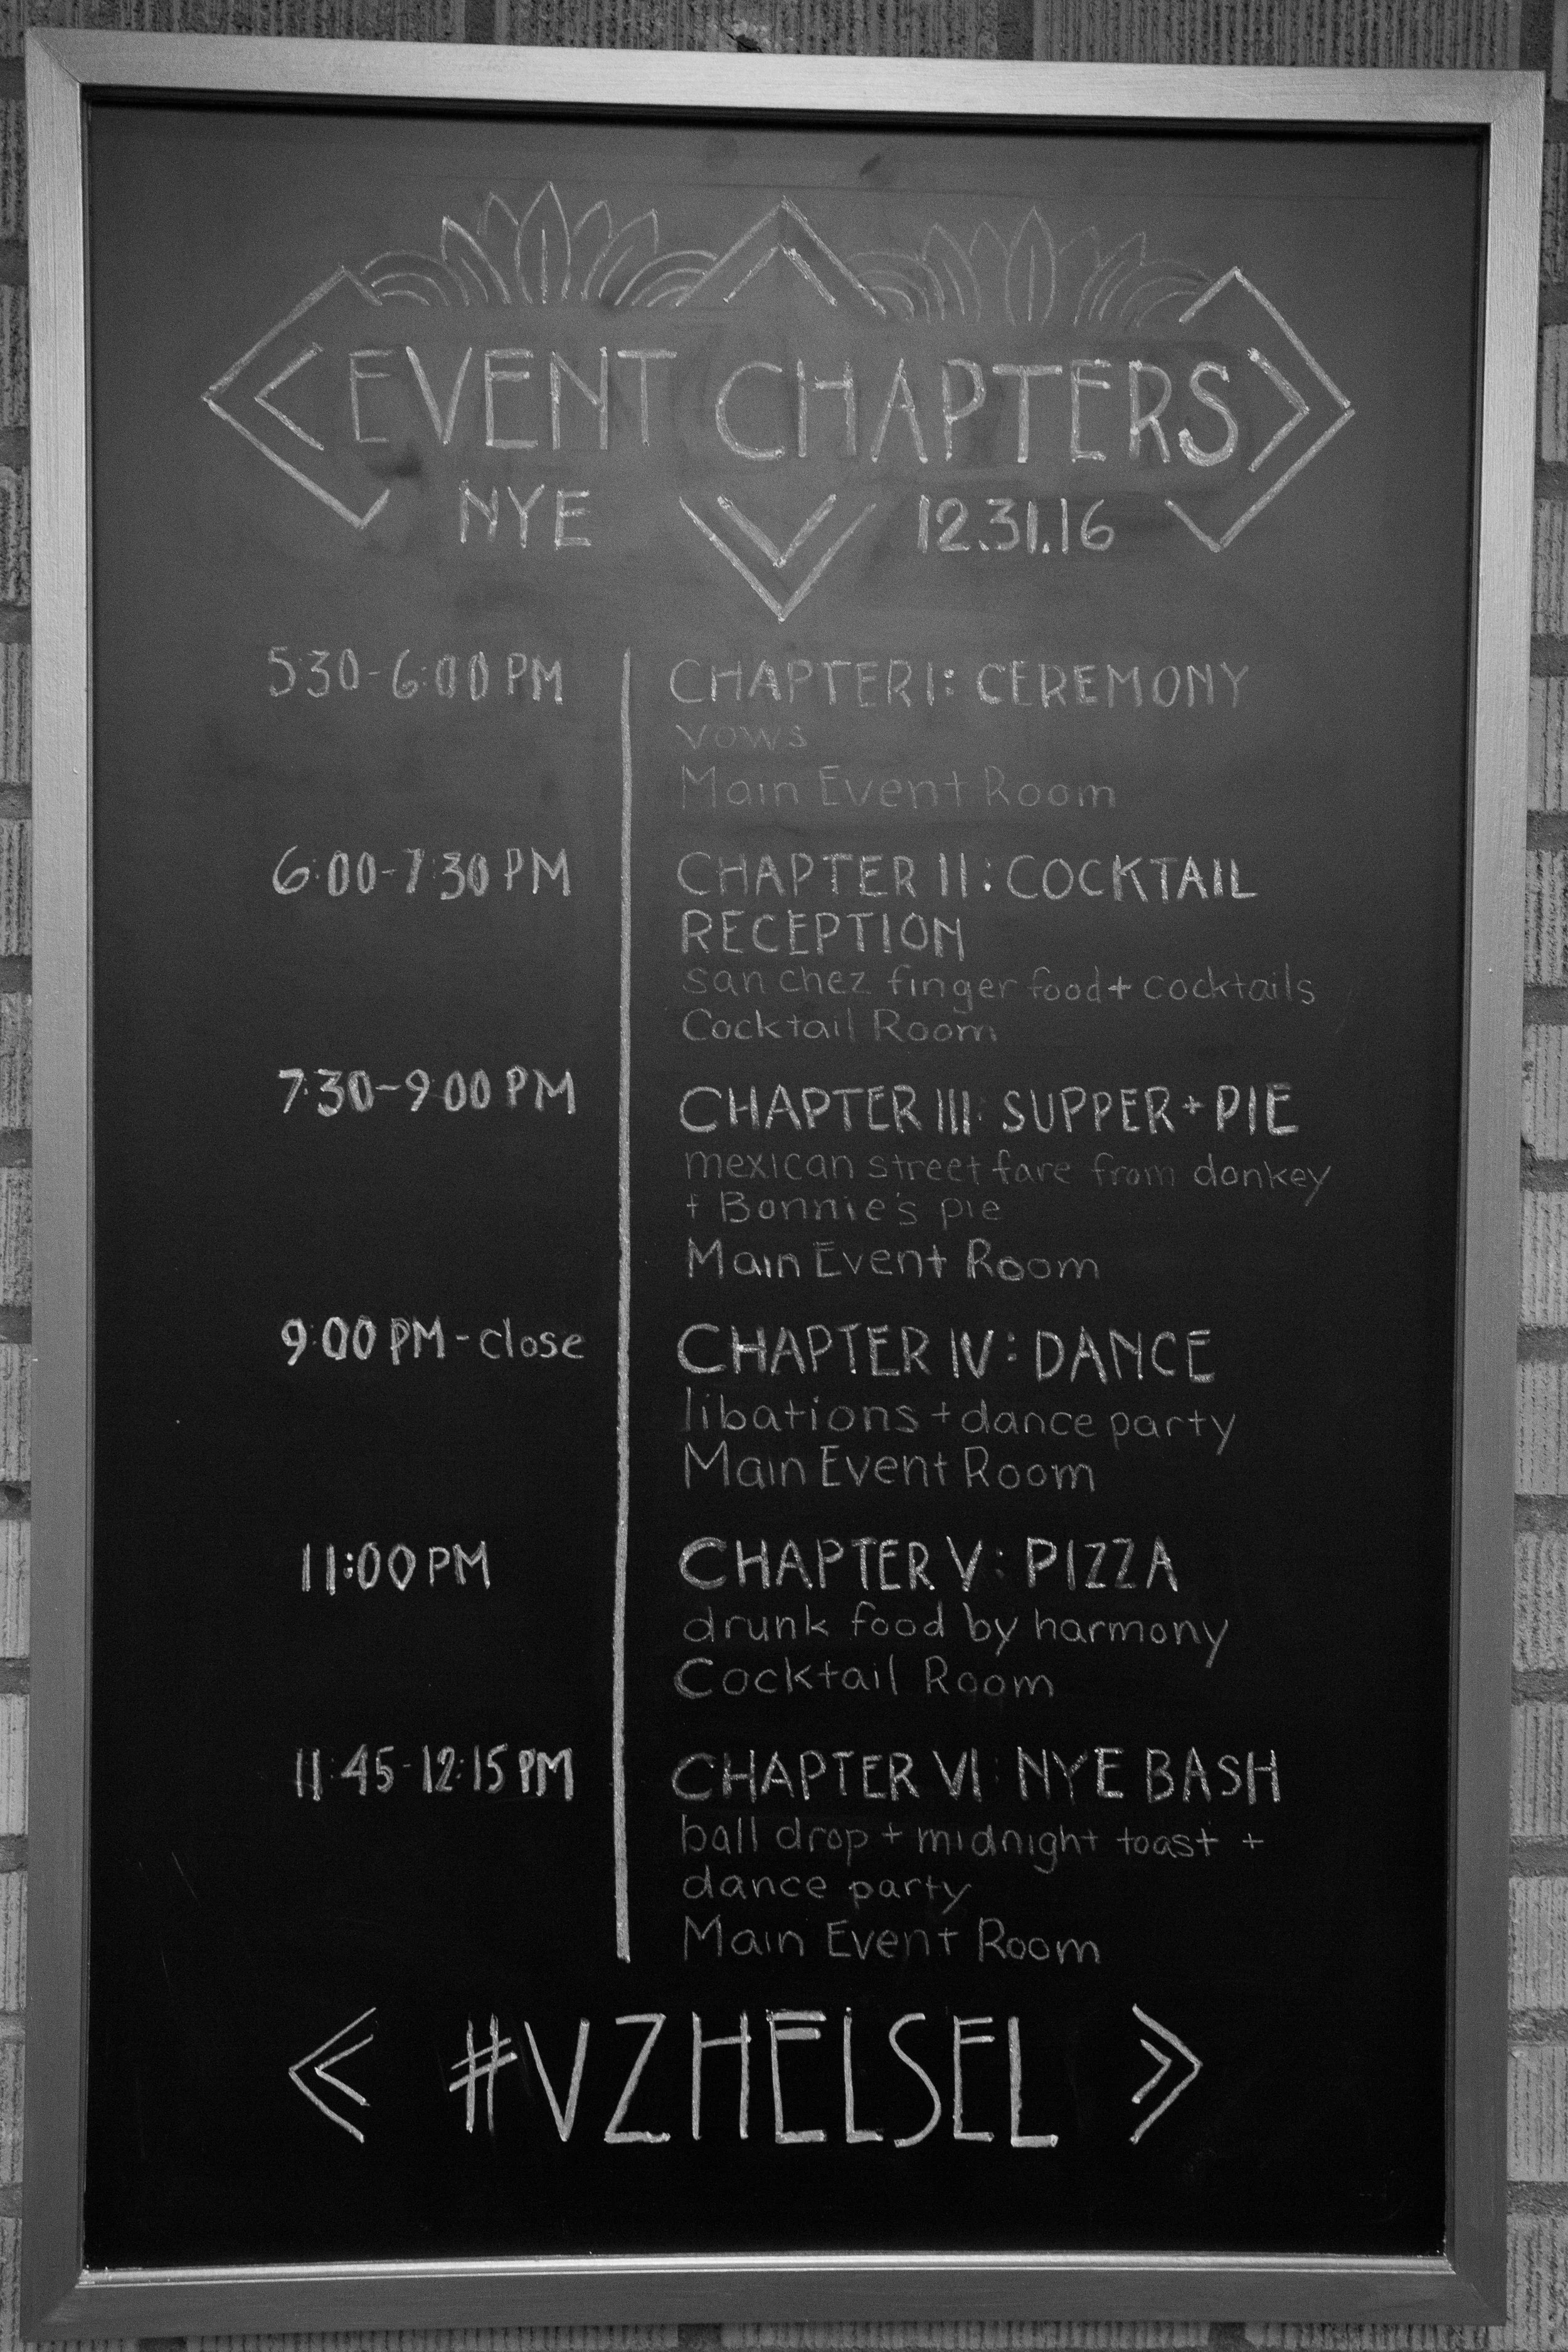 EVENT CHAPTERS
NYE 12.31.16
5:30-6:00 PM CHAPTER I: CEREMONY
vows
Main Event Room
6:00-7:30 PM CHAPTER II: COCKTAIL
RECEPTION
san chez finger food + cocktails
Cocktail Room
7:30-9:00 PM CHAPTER III: SUPPER + PIE
mexican street fare from donkey
+ Bonnie's pie
Main Event Room
9:00 PM - close CHAPTER IV: DANCE
libations + dance party
Main Event Room
11:00 PM CHAPTER V: PIZZA
drunk food by harmony
Cocktail Room
11:45-12:15 PM CHAPTER VI: NYE BASH
ball drop + midnight toast +
dance party
Main Event Room
#VZHELSEL